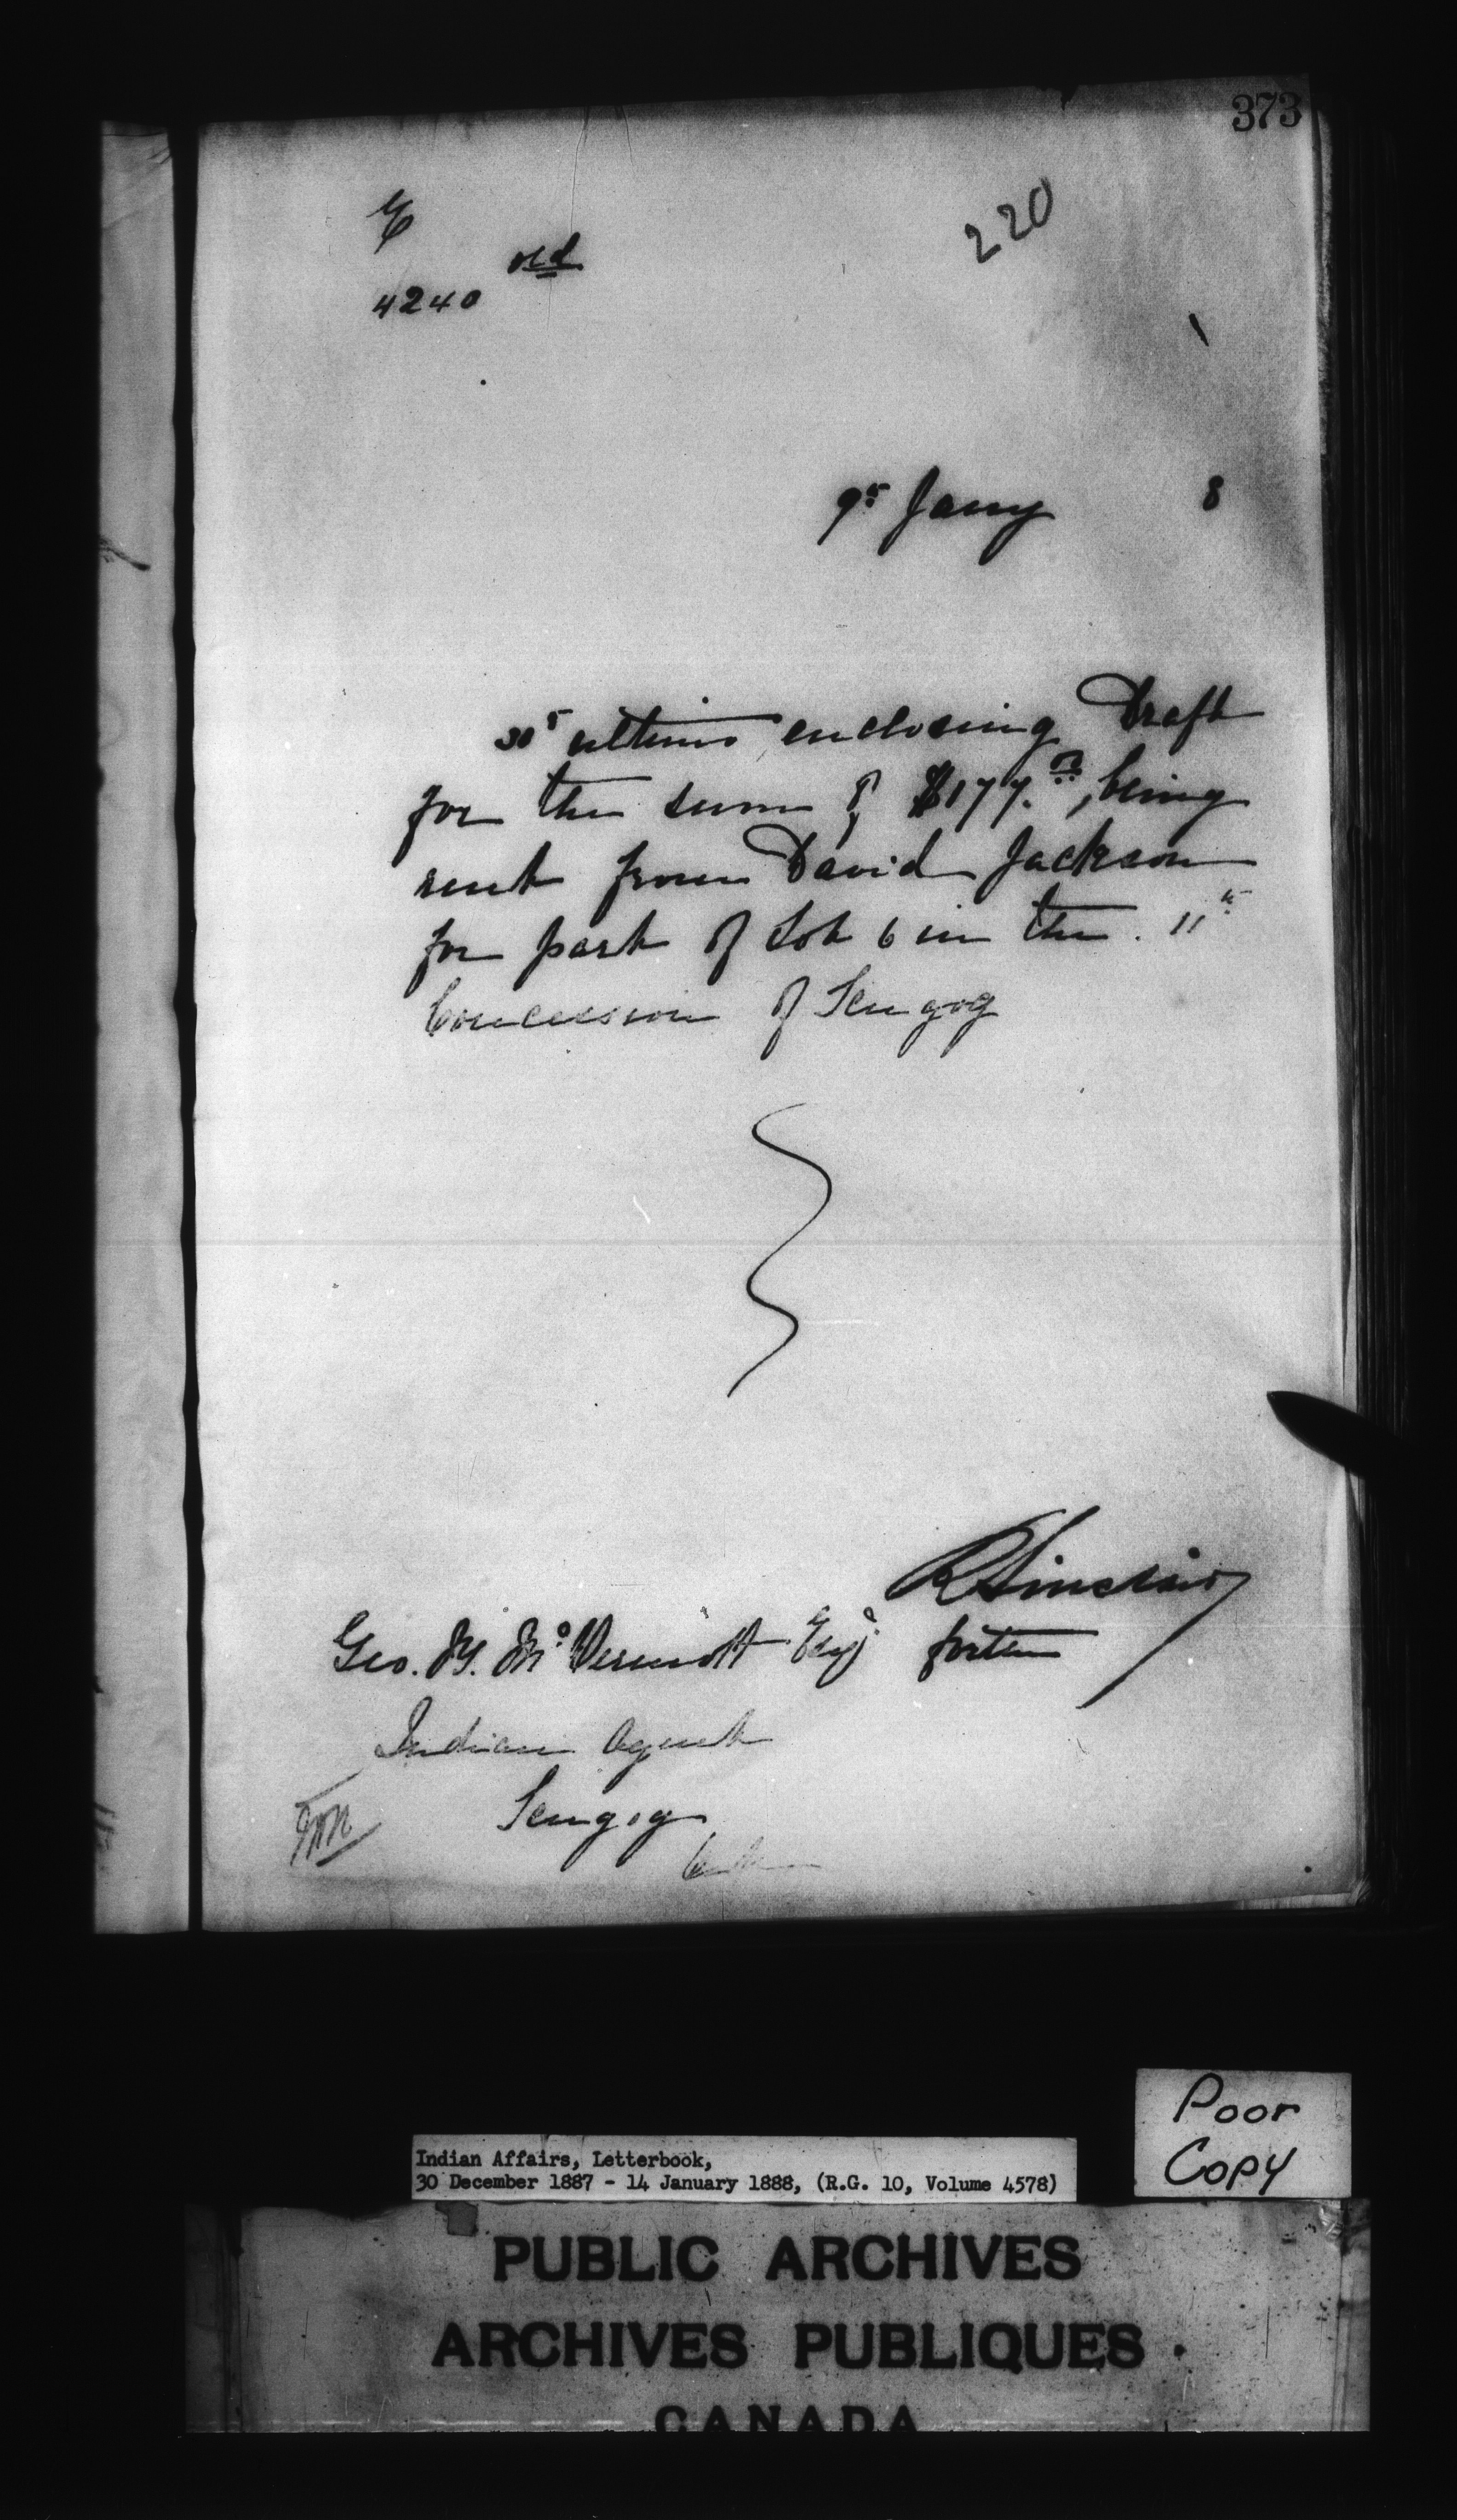 373
220
old
4240
9th Jany 8
30th ultimo enclosing Draft
for the sum of $177.00, being
rent from David Jackson
for part of Lot 6 in the 11th
Concession of Scugog
R Sinclair
Geo. McDermott Esq. for the
Indian Agent
Scugog
Poor
Copy
Indian Affairs, Letterbook,
30 December 1887 - 14 January 1888, (R.G. 10, Volume 4578)
PUBLIC ARCHIVES
ARCHIVES PUBLIQUES
CANADA